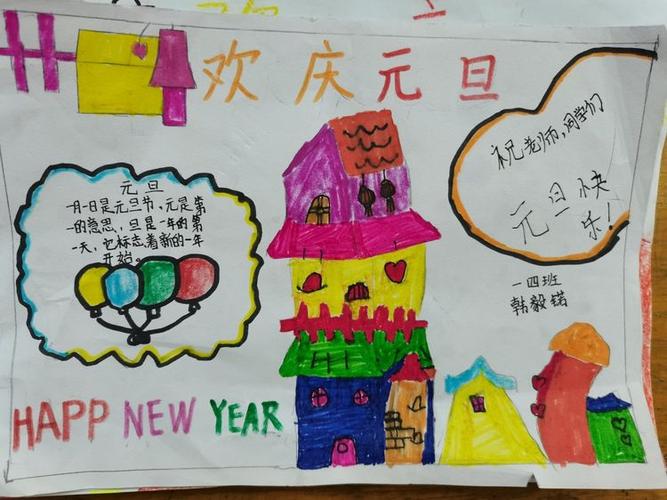 欢庆元旦
元旦
一月一日是元旦节、元是第
一的意思，旦是一年的第
一天，它标志着新的一年
开始。
祝老师，同学们
元旦快
乐！
一四班
韩毅锘
HAPP NEW YEAR